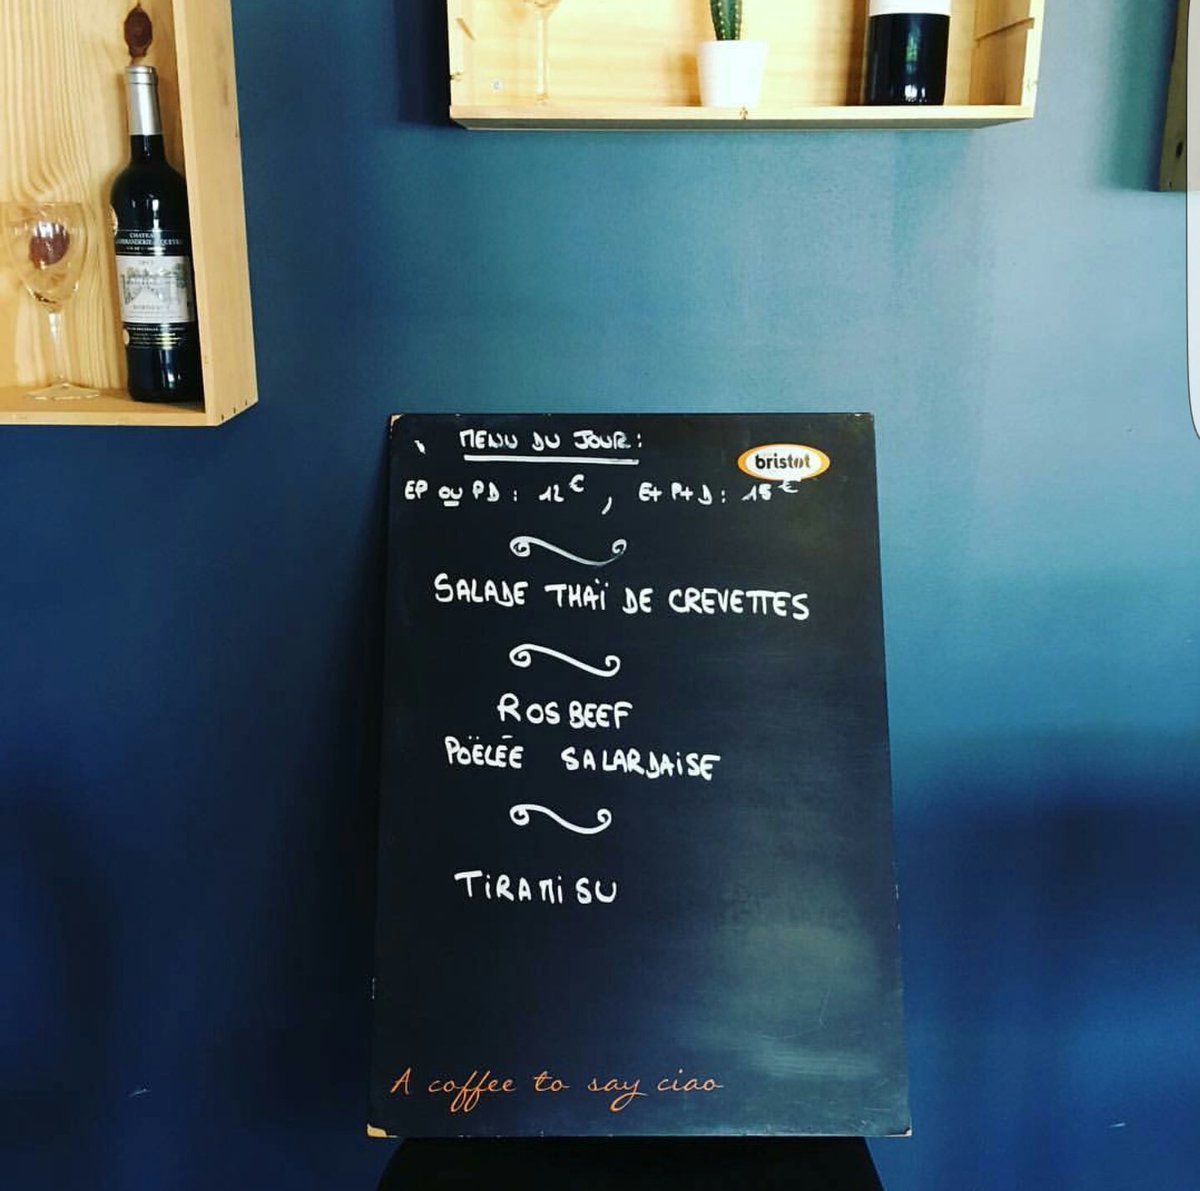 CHATEAU
BORDEAUX
MENU DU JOUR :
bristot
EP ou PD : 12€, E+P+D : 15€
SALADE THAÏ DE CREVETTES
ROSBEEF
POËLÉE SALARDAISE
TIRAMISU
A coffee to say ciao